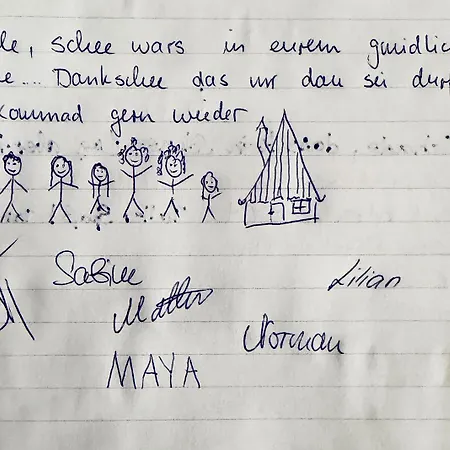 schee wars in eurem gmidlic
... Dankschee das mr dou sei durf
kommad gern wieder
Sabine
Lilian
Norman
MAYA